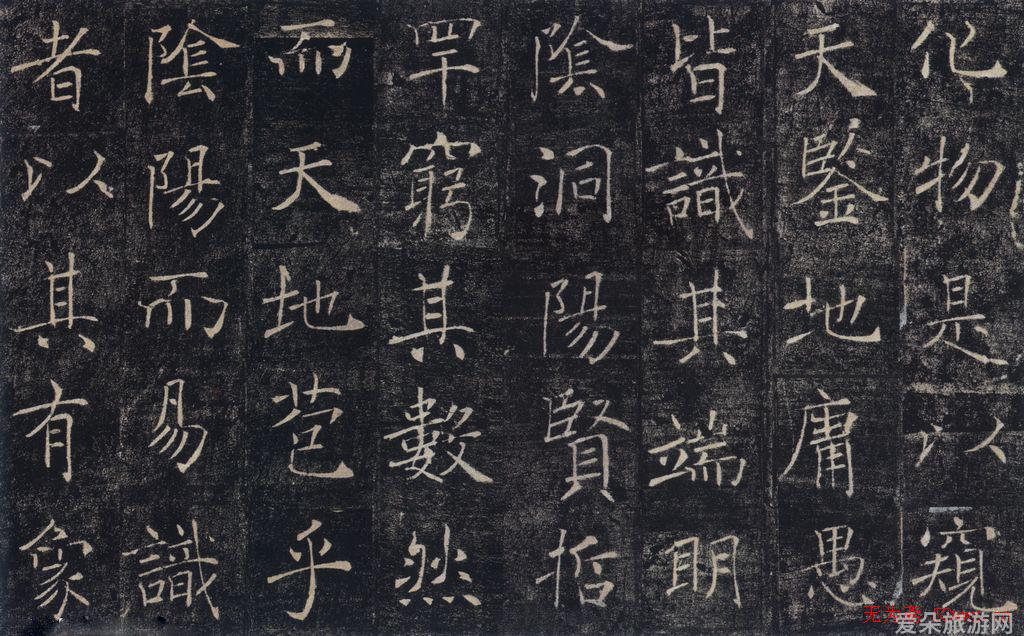 化物是以窺
天鑒地庸愚
皆識其端明
陰洞陽賢哲
罕窮其數然
而天地苞乎
陰陽而易識
者以其有象
爱朵旅游网